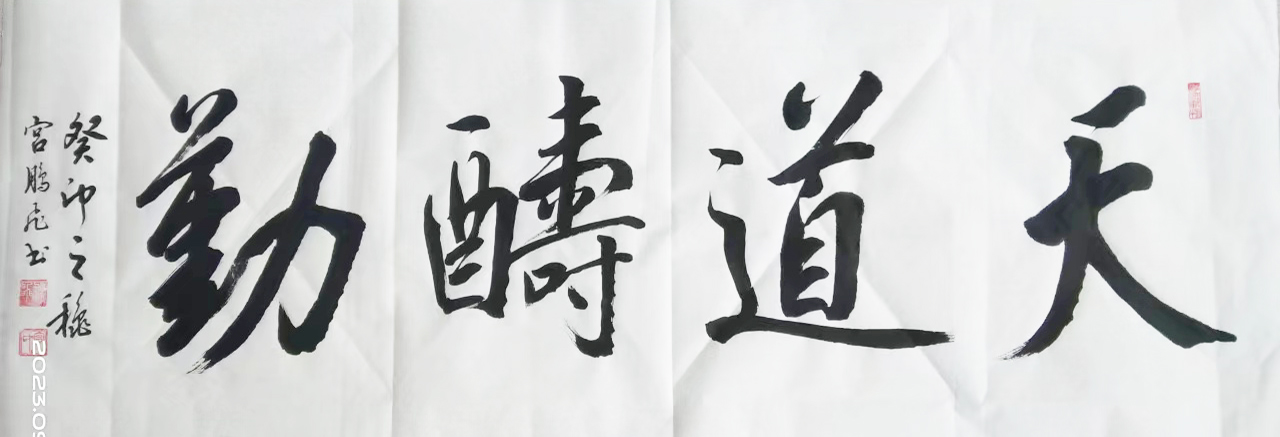 天道酬勤
癸卯之穐
宫鹏飞书
2023.09